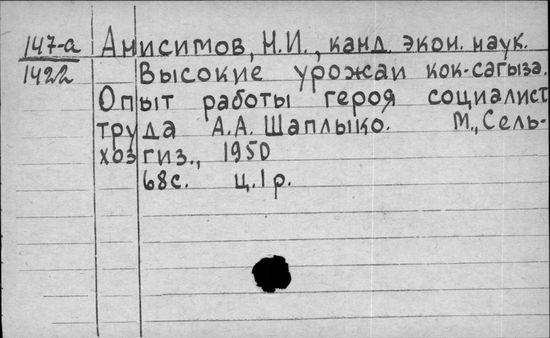 147-а Анисимов, Н.И., канд. экон. наук.
1422 Высокие урожаи кок-сагыза.
Опыт работы героя социалист
труда А.А. Шаплыко. М., Сель-
хозгиз., 1950
68с. ц.1р.